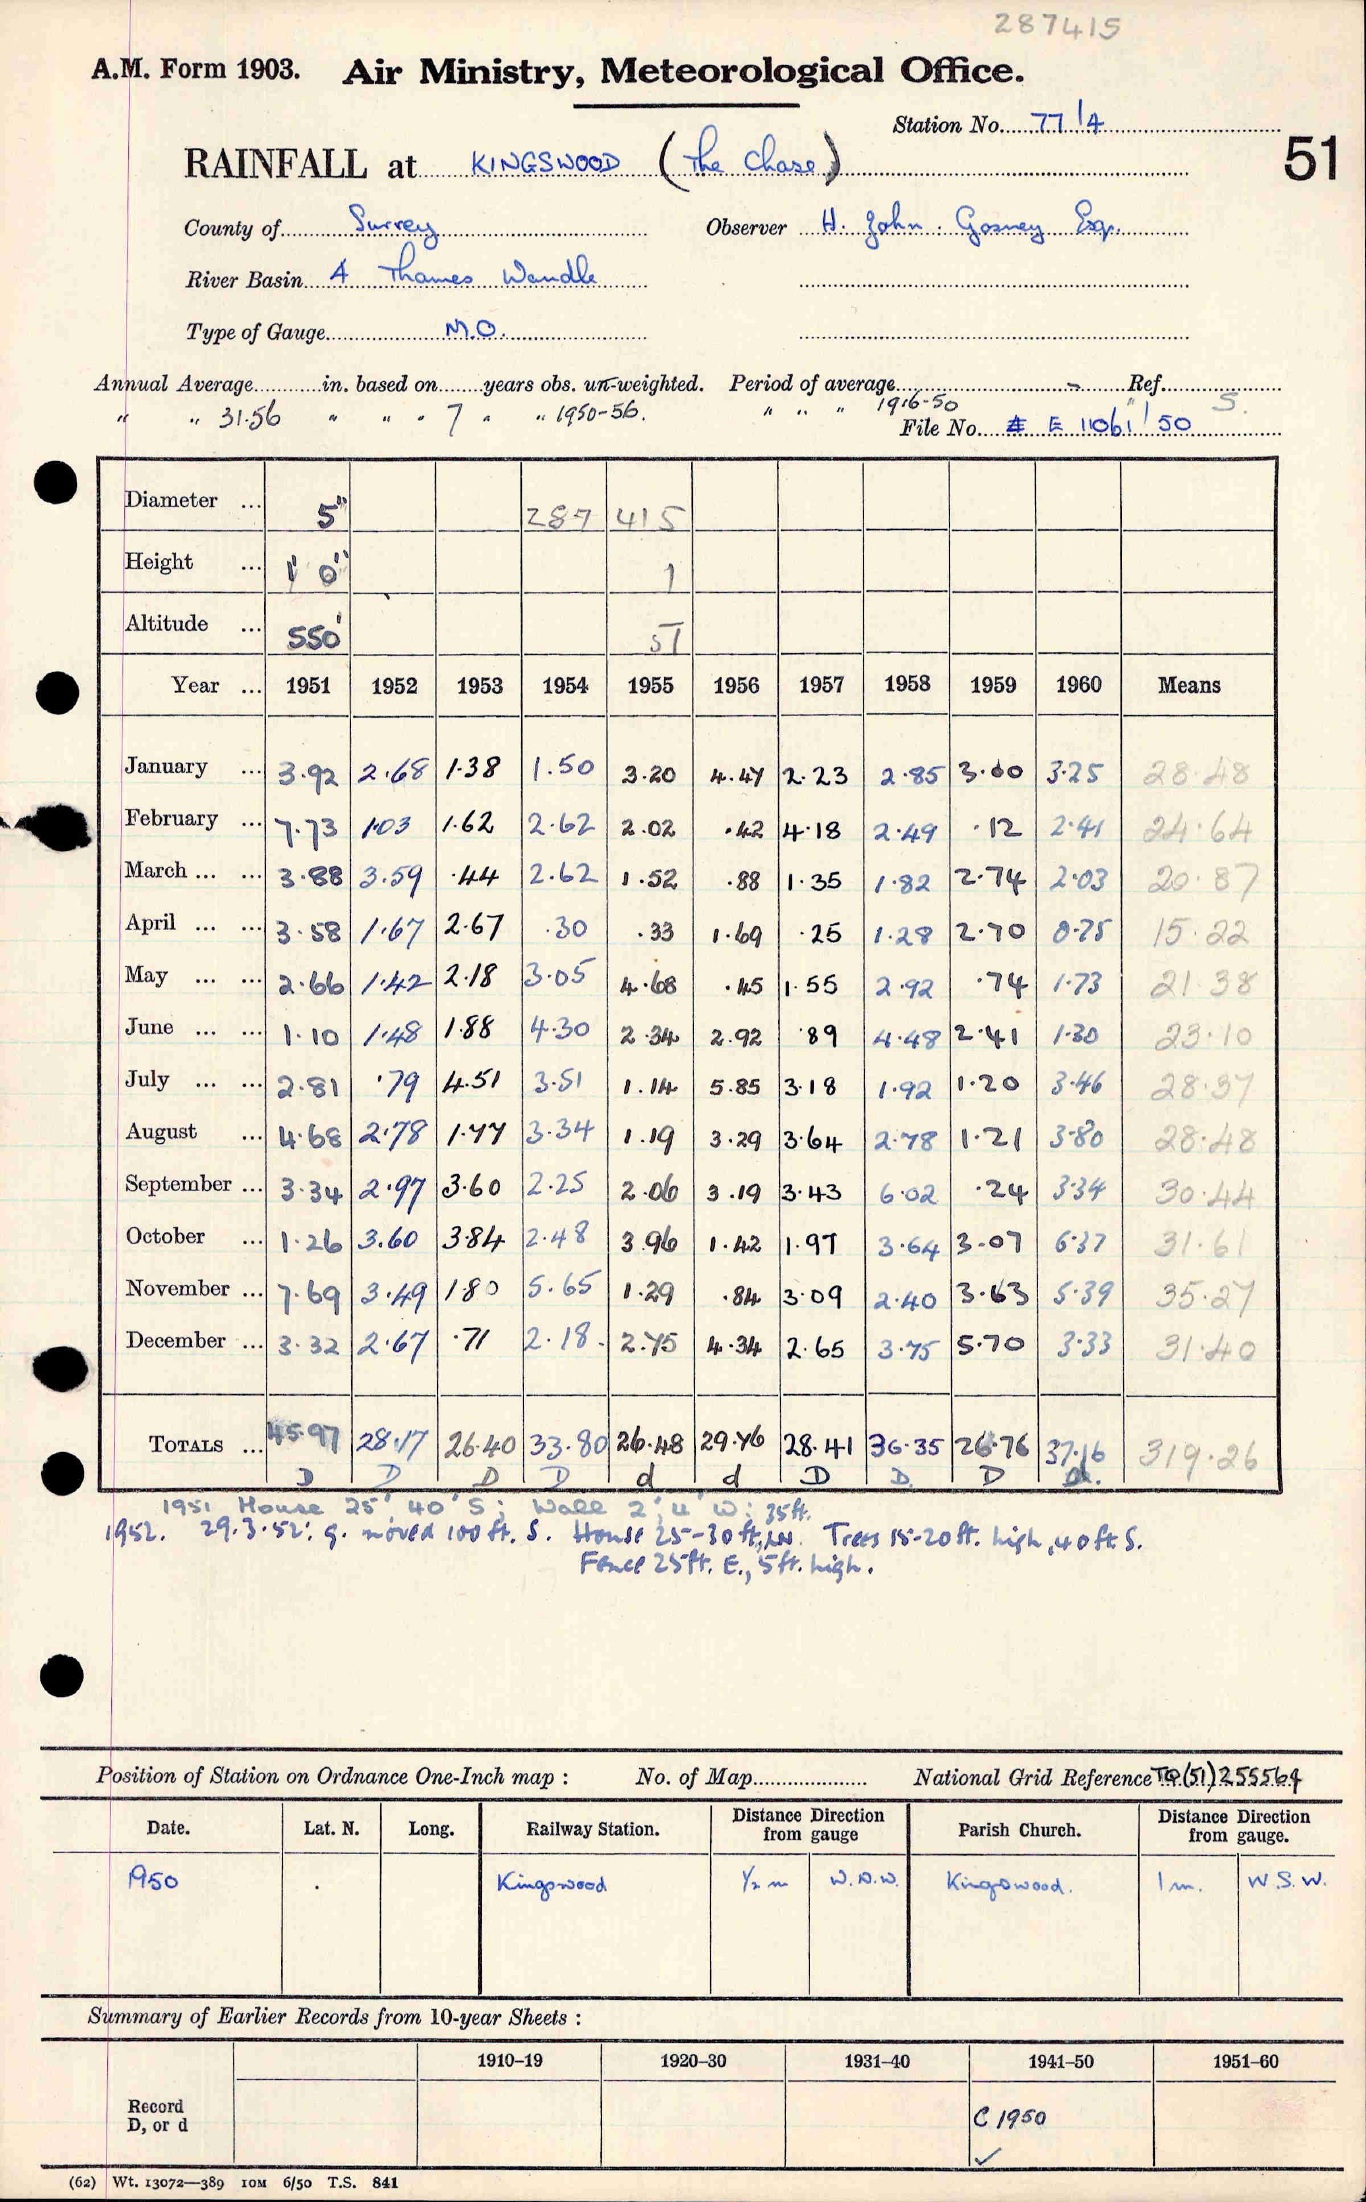 287415
A.M. Form 1903. Air Ministry, Meteorological Office.
Station No. 77/4
51
RAINFALL at KINGSWOOD (The Chase)
County of Surrey Observer H. John. Gosney Esq.
River Basin 4 Thames Wandle
Type of Gauge M.O.
Annual Average in. based on years obs. un-weighted. Period of average - Ref.
" " 31.56 " " " 7 " " 1950-56. " " " 1916-50 " S.
File No. E 11061/50
Diameter ... 5" 287 415
Height ... 1' 0" 1
Altitude ... 550' 51
Year ... 1951 1952 1953 1954 1955 1956 1957 1958 1959 1960 Means
January ... 3.92 2.68 1.38 1.50 3.20 4.47 2.23 2.85 3.00 3.25 28.48
February ... 7.73 1.03 1.62 2.62 2.02 .42 4.18 2.49 .12 2.41 24.64
March ... ... 3.88 3.59 .44 2.62 1.52 .88 1.35 1.82 2.74 2.03 20.87
April ... ... 3.58 1.67 2.67 .30 .33 1.69 .25 1.28 2.70 0.75 15.22
May ... ... 2.66 1.42 2.18 3.05 4.68 .45 1.55 2.92 .74 1.73 21.38
June ... ... 1.10 1.48 1.88 4.30 2.34 2.92 .89 4.48 2.41 1.30 23.10
July ... ... 2.81 .79 4.51 3.51 1.14 5.85 3.18 1.92 1.20 3.46 28.37
August ... 4.68 2.78 1.77 3.34 1.19 3.29 3.64 2.78 1.21 3.80 28.48
September ... 3.34 2.97 3.60 2.25 2.06 3.19 3.43 6.02 .24 3.34 30.44
October ... 1.26 3.60 3.84 2.48 3.96 1.42 1.97 3.64 3.07 6.37 31.61
November ... 7.69 3.49 1.80 5.65 1.29 .84 3.09 2.40 3.63 5.39 35.27
December ... 3.32 2.67 .71 2.18. 2.75 4.34 2.65 3.75 5.70 3.33 31.40
TOTALS ... 45.97 28.17 26.40 33.80 26.48 29.76 28.41 36.35 26.76 37.16 319.26
D D D D d d D D. D
1951 House 25', 40' S; Wall 2', 4' W: 35ft.
1952. 29.3.52: g. moved 100ft. S. House 25-30ft, N. Trees 15-20ft. high, 40ft S.
Fence 25ft. E., 5ft. high.
Position of Station on Ordnance One-Inch map : No. of Map National Grid Reference TQ(51)255564
Date. Lat. N. Long. Railway Station. Distance from gauge Direction Parish Church. Distance from gauge. Direction
1950 Kingswood ½ m W.N.W. Kingswood. 1 m. W.S.W.
Summary of Earlier Records from 10-year Sheets :
1910–19 1920–30 1931–40 1941–50 1951–60
Record
D, or d
C 1950
✓
(62) Wt. 13072—389 10M 6/50 T.S. 841